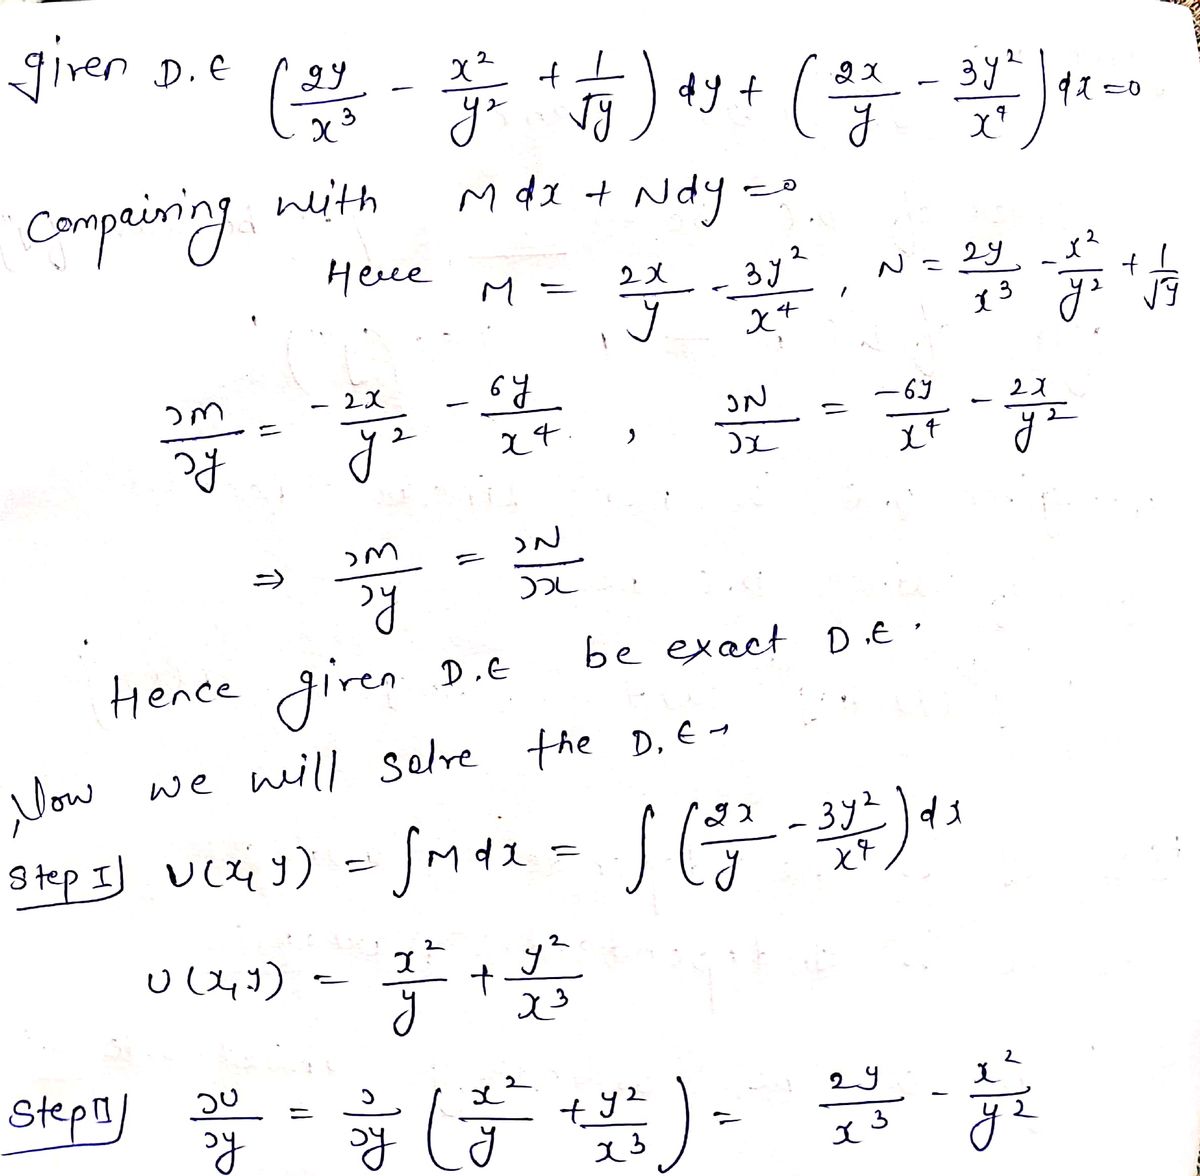 given D.E (2y/x³ - x²/y² + 1/√y) dy + (2x/y - 3y²/x⁴) dx = 0
Compairing with M dx + N dy = 0
Here M = 2x/y - 3y²/x⁴ , N = 2y/x³ - x²/y² + 1/√y
∂M/∂y = -2x/y² - 6y/x⁴ , ∂N/∂x = -6y/x⁴ - 2x/y²
⇒ ∂M/∂y = ∂N/∂x
Hence given D.E be exact D.E.
Now we will solve the D.E →
Step I) U(x, y) = ∫M dx = ∫(2x/y - 3y²/x⁴) dx
U(x, y) = x²/y + y²/x³
Step II) ∂U/∂y = ∂/∂y (x²/y + y²/x³) = 2y/x³ - x²/y²